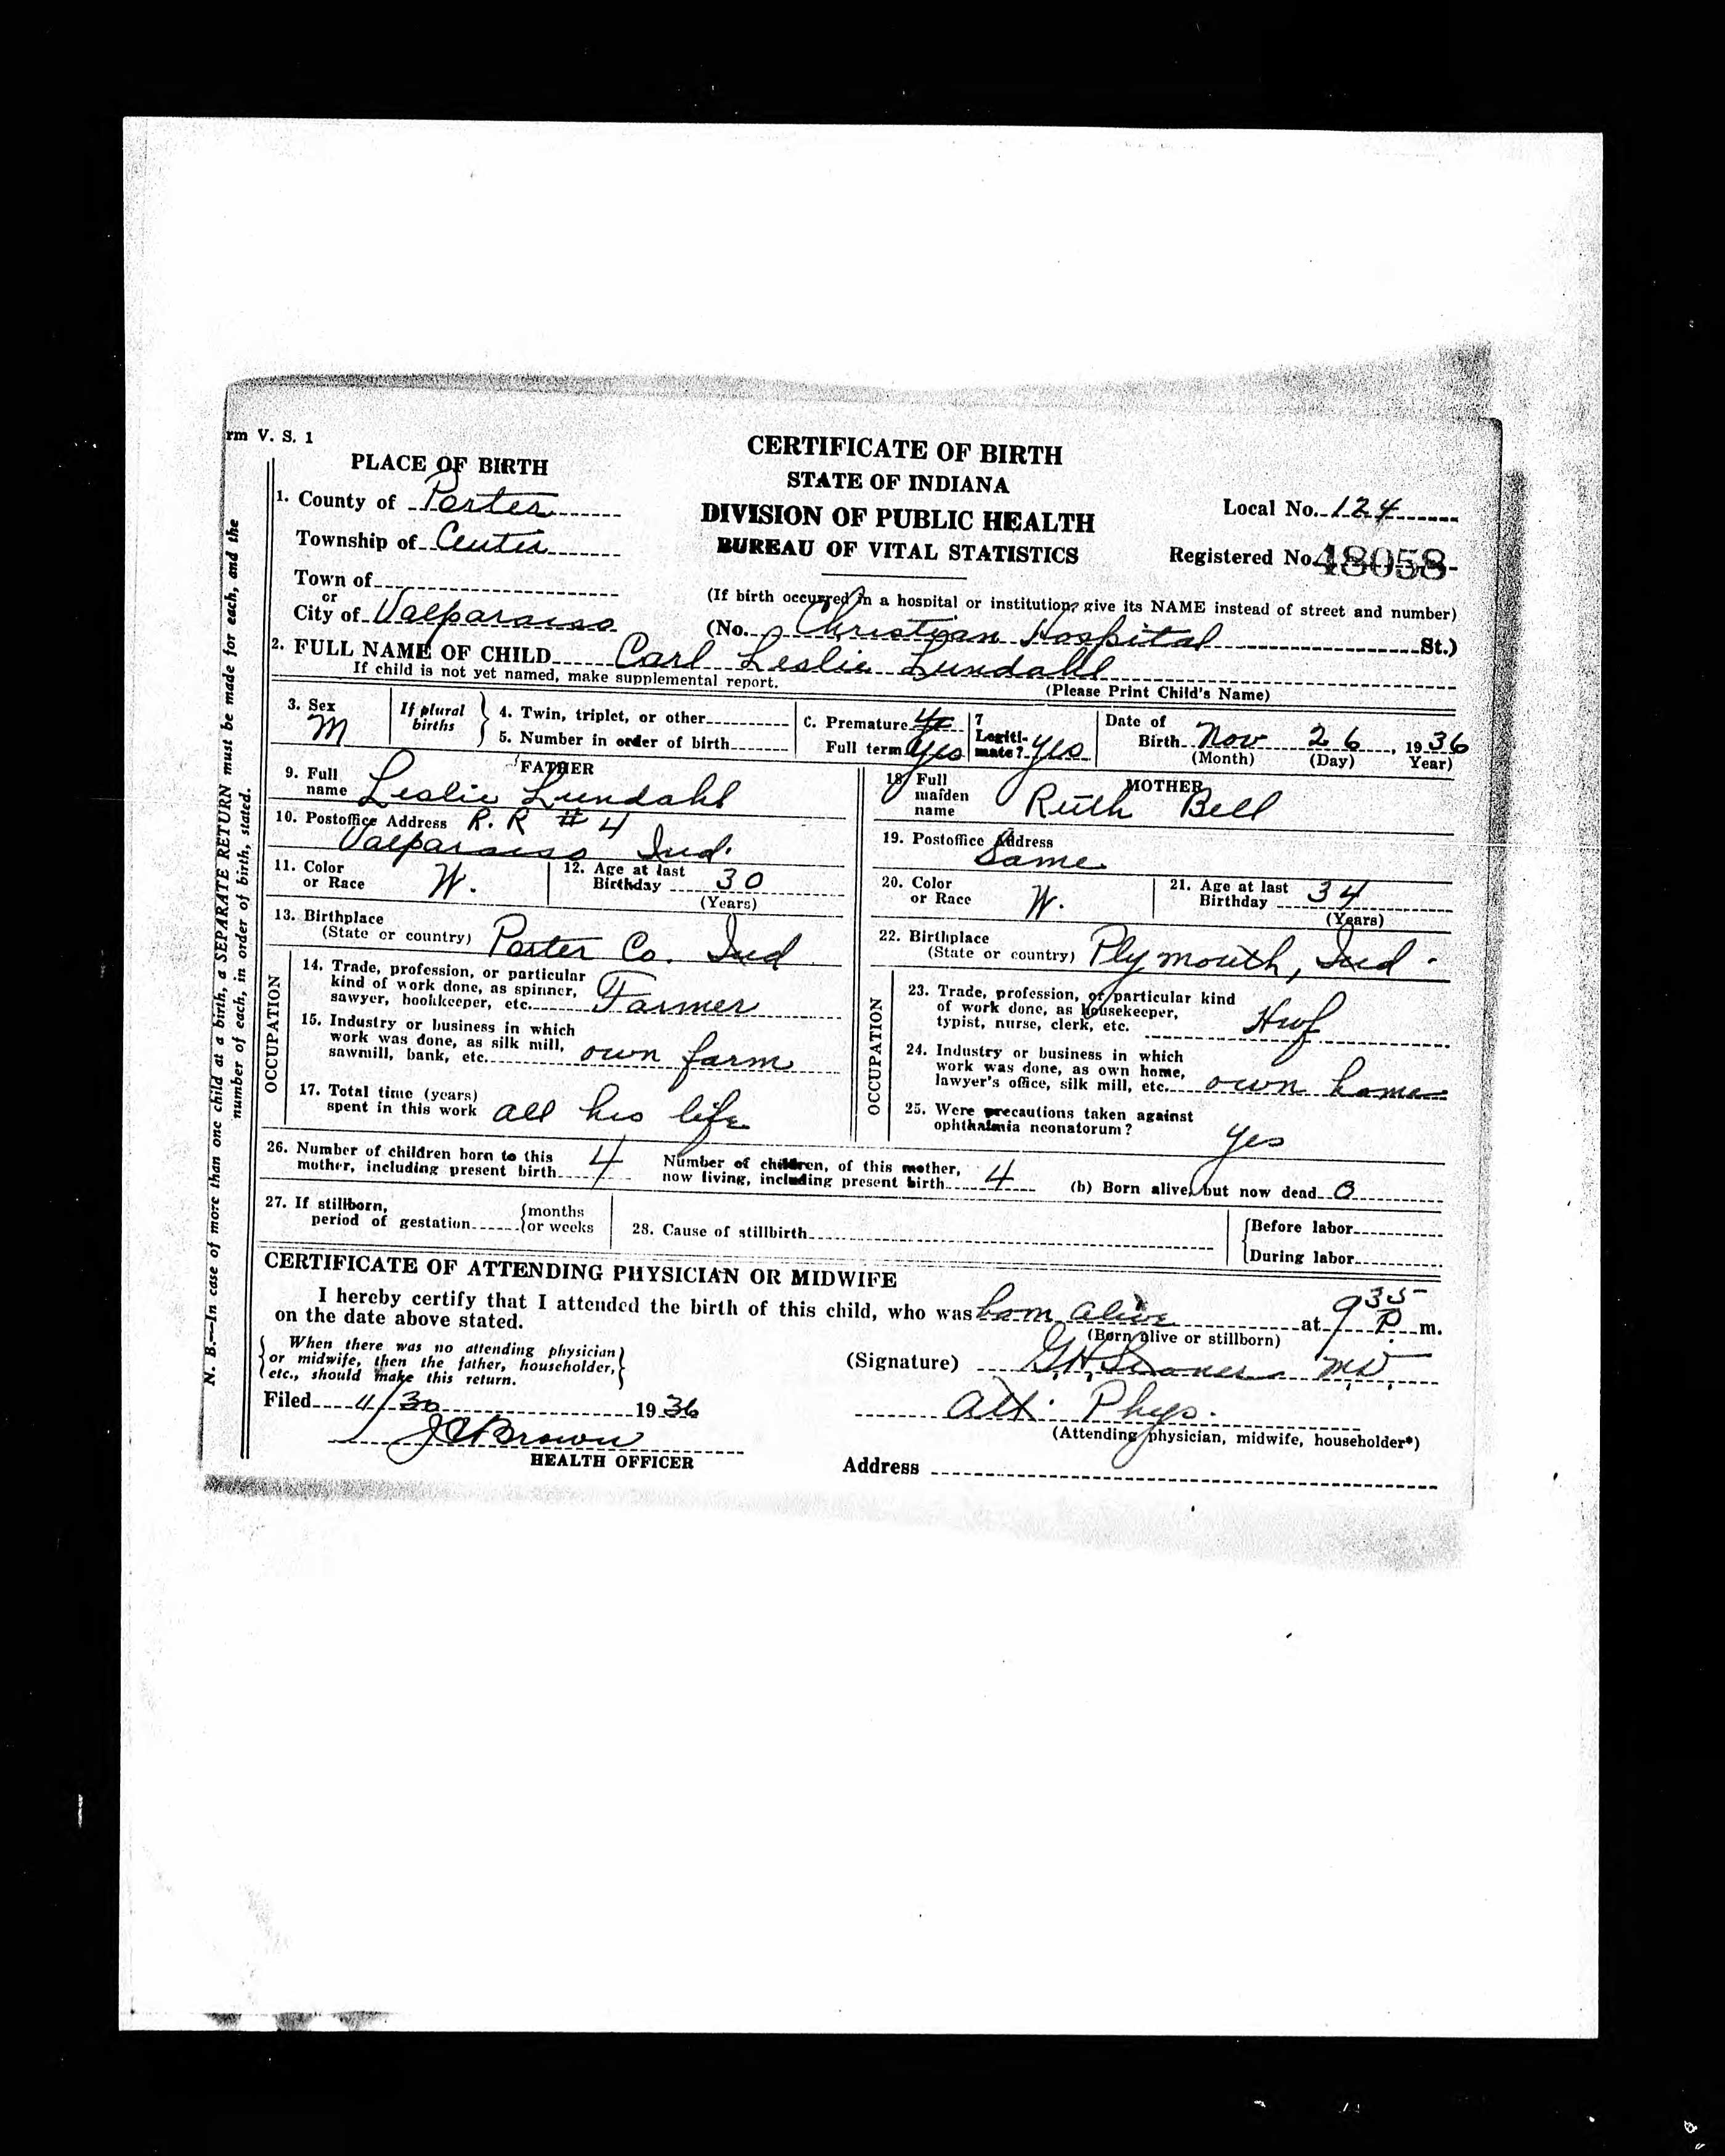 rm V. S. 1
PLACE OF BIRTH
1. County of Porter
Township of Center
Town of
or
City of Valparaiso
CERTIFICATE OF BIRTH
STATE OF INDIANA
DIVISION OF PUBLIC HEALTH
BUREAU OF VITAL STATISTICS
Local No. 124
Registered No. 48058
(If birth occurred in a hospital or institution, give its NAME instead of street and number)
(No. Christian Hospital St.)
2. FULL NAME OF CHILD Carl Leslie Lundahl
If child is not yet named, make supplemental report.
(Please Print Child's Name)
3. Sex M
If plural births
4. Twin, triplet, or other
5. Number in order of birth
C. Premature
Full term Yes
7 Legiti-
mate? Yes
Date of
Birth Nov 26, 1936
(Month) (Day) Year)
FATHER
9. Full
name Leslie Lundahl
10. Postoffice Address R. R # 4
Valparaiso Ind.
11. Color
or Race W.
12. Age at last
Birthday 30
(Years)
13. Birthplace
(State or country) Porter Co. Ind
OCCUPATION
14. Trade, profession, or particular
kind of work done, as spinner,
sawyer, bookkeeper, etc. Farmer
15. Industry or business in which
work was done, as silk mill,
sawmill, bank, etc. own farm
17. Total time (years)
spent in this work all his life
MOTHER
18 Full
maiden
name Ruth Bell
19. Postoffice Address
Same
20. Color
or Race W.
21. Age at last
Birthday 34
(Years)
22. Birthplace
(State or country) Plymouth, Ind.
OCCUPATION
23. Trade, profession, or particular kind
of work done, as housekeeper,
typist, nurse, clerk, etc. Hwf
24. Industry or business in which
work was done, as own home,
lawyer's office, silk mill, etc. own home
25. Were precautions taken against
ophthalmia neonatorum? Yes
26. Number of children born to this
mother, including present birth 4
Number of children, of this mother,
now living, including present birth 4
(b) Born alive, but now dead 0
27. If stillborn,
period of gestation
months
or weeks
28. Cause of stillbirth
Before labor
During labor
CERTIFICATE OF ATTENDING PHYSICIAN OR MIDWIFE
I hereby certify that I attended the birth of this child, who was born alive at 9 35 P. m.
on the date above stated.
(Born alive or stillborn)
When there was no attending physician
or midwife, then the father, householder,
etc., should make this return.
(Signature) G.H. M.D.
Filed 11/30 1936
Att. Phys.
(Attending physician, midwife, householder*)
J C Brown
HEALTH OFFICER
Address
N. B.—In case of more than one child at a birth, a SEPARATE RETURN must be made for each, and the
number of each, in order of birth, stated.